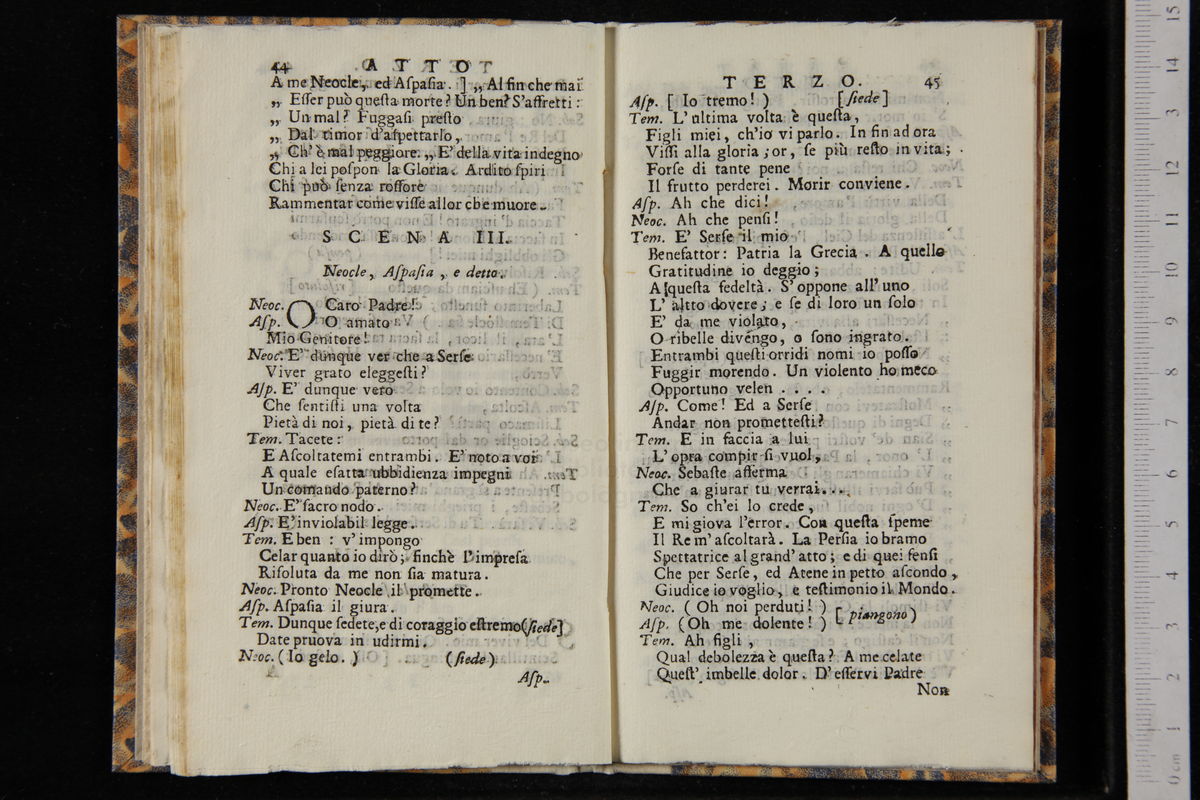 44 ATTO
A me Neocle, ed Aſpaſia. ] „ Al fin che mai
„ Eſſer può queſta morte? Un ben? S'affretti:
„ Un mal? Fuggaſi preſto
„ Dal timor d'aſpettarlo,
„ Ch' è mal peggiore. „ E' della vita indegno
Chi a lei poſpon la Gloria. Ardito ſpiri
Chi può ſenza roſſore
Rammentar come viſſe allor che muore.
SCENA III.
Neocle, Aſpaſia, e detto.
Neoc. O Caro Padre!
Aſp. O amato
Mio Genitore!
Neoc. E' dunque ver che a Serſe
Viver grato eleggeſti?
Aſp. E' dunque vero
Che ſentiſti una volta
Pietà di noi, pietà di te?
Tem. Tacete:
E Aſcoltatemi entrambi. E' noto a voi
A quale eſatta ubbidienza impegni
Un comando paterno?
Neoc. E' ſacro nodo.
Aſp. E' inviolabil legge.
Tem. E ben : v' impongo
Celar quanto io dirò; finchè l'impreſa
Riſoluta da me non ſia matura.
Neoc. Pronto Neocle il promette.
Aſp. Aſpaſia il giura.
Tem. Dunque ſedete, e di coraggio eſtremo (ſiede]
Date pruova in udirmi.
Neoc. (Io gelo. ) (ſiede)
Aſp.
TERZO. 45
Aſp. [ Io tremo! ) [ſiede]
Tem. L' ultima volta è queſta,
Figli miei, ch'io vi parlo. In fin ad ora
Viſſi alla gloria; or, ſe più reſto in vita;
Forſe di tante pene
Il frutto perderei. Morir conviene.
Aſp. Ah che dici!
Neoc. Ah che penſi!
Tem. E' Serſe il mio
Benefattor: Patria la Grecia. A quello
Gratitudine io deggio;
A queſta fedeltà. S' oppone all' uno
L' altto dovere; e ſe di loro un ſolo
E' da me violato,
O ribelle divengo, o ſono ingrato.
Entrambi queſti orridi nomi io poſſo
Fuggir morendo. Un violento ho meco
Opportuno velen . . . .
Aſp. Come! Ed a Serſe
Andar non prometteſti?
Tem. E in faccia a lui
L' opra compir ſi vuol,
Neoc. Sebaſte afferma
Che a giurar tu verrai....
Tem. So ch'ei lo crede,
E mi giova l'error. Con queſta ſpeme
Il Re m' aſcoltarà. La Perſia io bramo
Spettatrice al grand' atto; e di quei ſenſi
Che per Serſe, ed Atene in petto aſcondo,
Giudice io voglio, e teſtimonio il Mondo.
Neoc. ( Oh noi perduti! ) [ piangono)
Aſp. (Oh me dolente! )
Tem. Ah figli,
Qual debolezza è queſta? A me celate
Queſt' imbelle dolor. D' eſſervi Padre
Non
0 cm 1 2 3 4 5 6 7 8 9 10 11 12 13 14 15